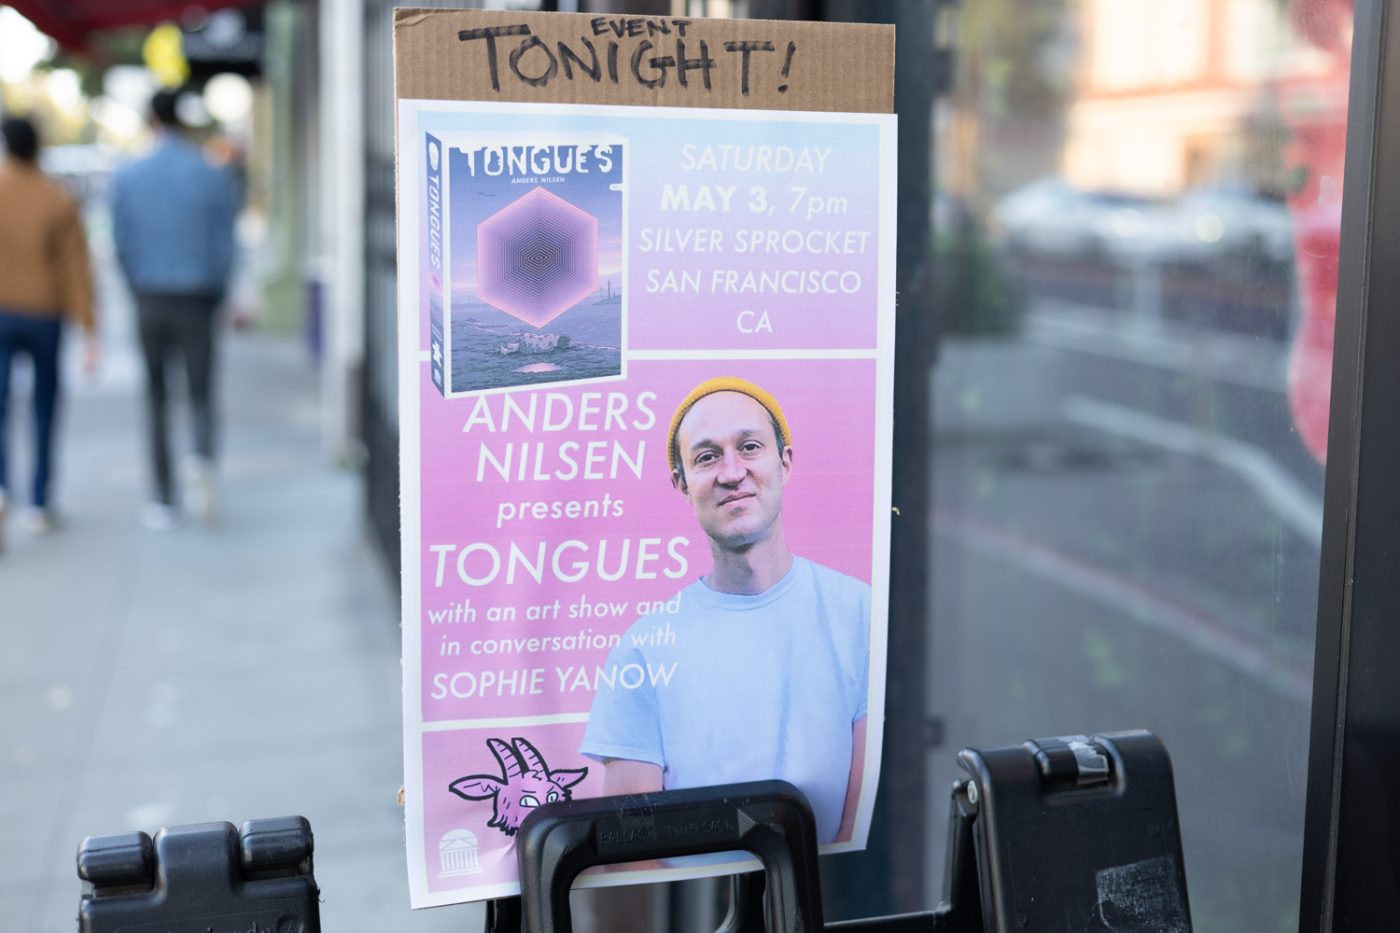 EVENT
TONIGHT!
TONGUES
ANDERS NILSEN
TONGUES
SATURDAY
MAY 3, 7pm
SILVER SPROCKET
SAN FRANCISCO
CA
ANDERS
NILSEN
presents
TONGUES
with an art show and
in conversation with
SOPHIE YANOW